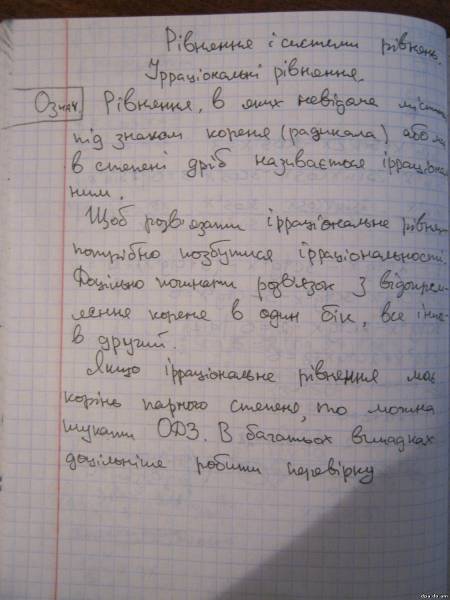 Рівняння і системи рівнянь.
Ірраціональні рівняння.
Означ. Рівняння, в яких невідоме містить
під знаком кореня (радикала) або
в степені дріб називається ірраціональ
ним.
Щоб розв'язати ірраціональне рівнян
потрібно позбутися ірраціональності.
Доцільно починати розв'язок з відокрем-
лення кореня в один бік, все інше
в другий.
Якщо ірраціональне рівняння має
корінь парного степеня, то можна
шукати ОДЗ. В багатьох випадках
доцільніше робити перевірку
dpa.do.am